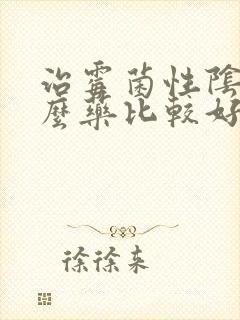 治霉菌性陰
麼藥比較好
徐徐来